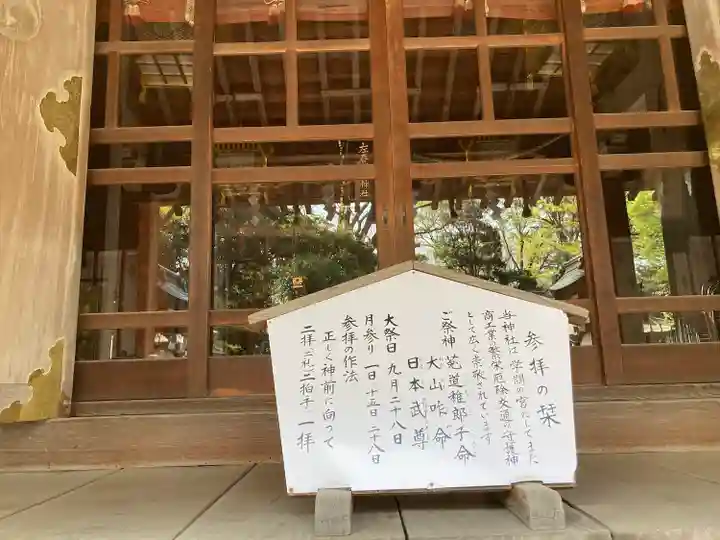 参拝の栞
当神社は学問の宮にしてまた
商工業の繁栄厄除交通の守護神
として広く崇敬されています
ご祭神 菟道稚郎子命
大山咋命
日本武尊
大祭日 九月二十八日
月参り 一日 十五日 二十八日
参拝の作法
正しく神前に向って
二拝(二礼)二拍手 一拝
神社